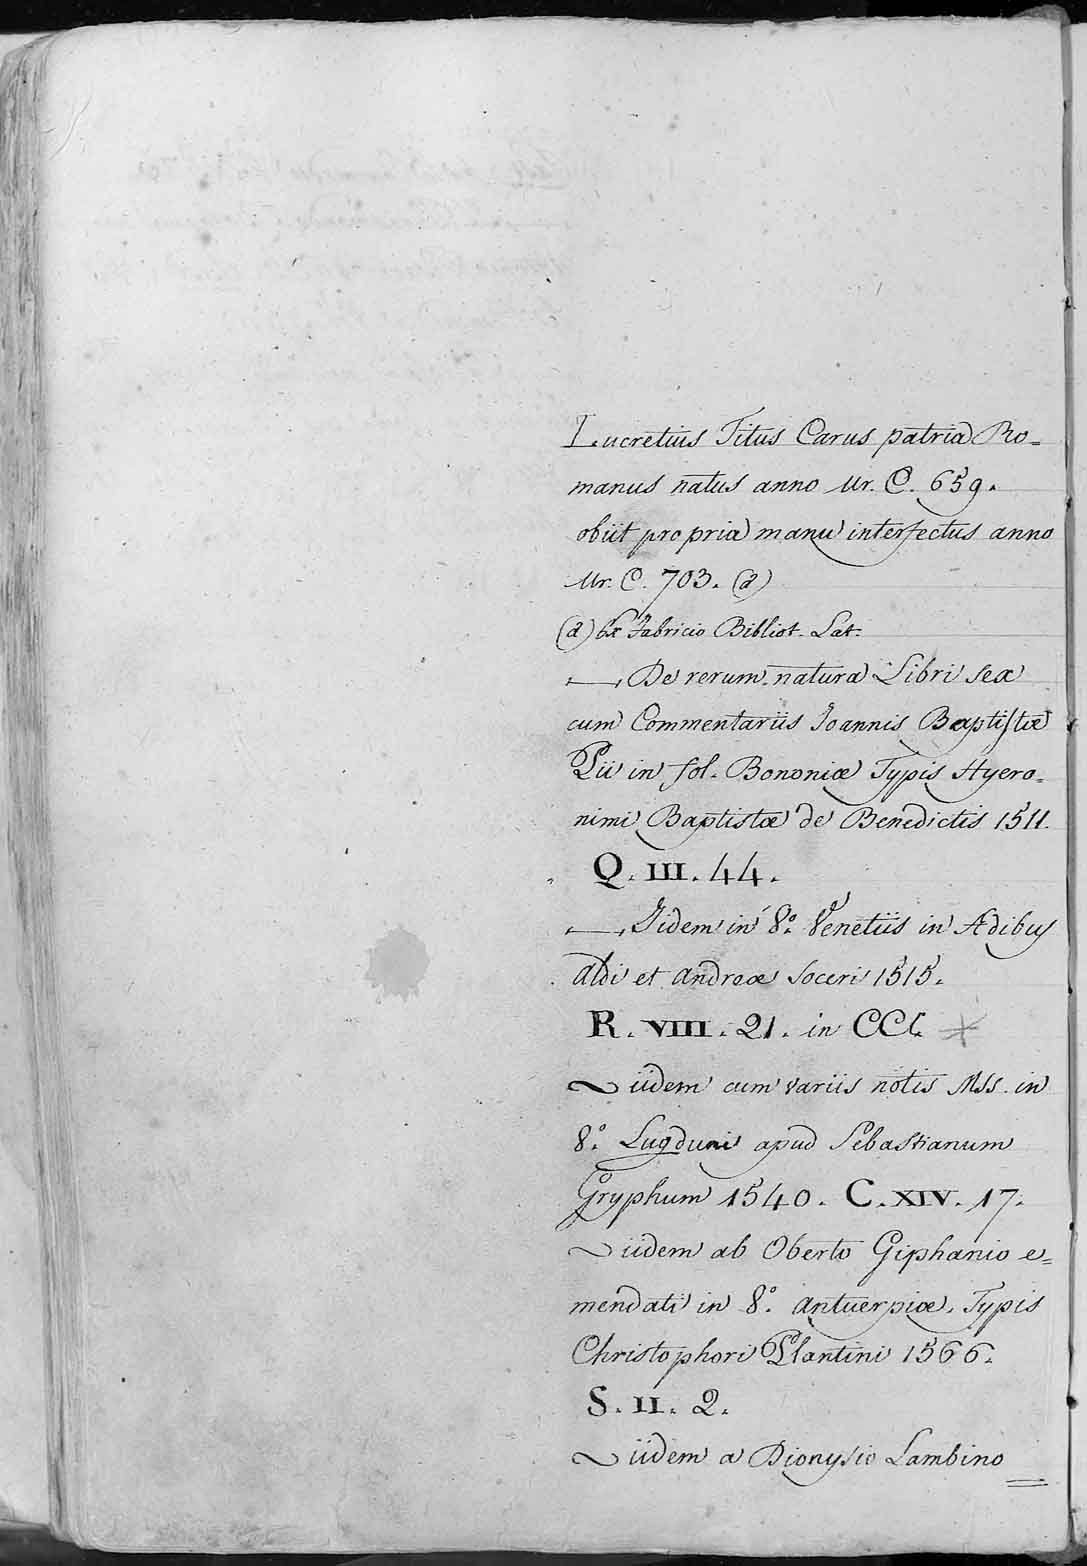 Lucretius Titus Carus patria Ro=
manus natus anno Ur. C. 659.
obiit propria manu interfectus anno
Ur. C. 703. (a)
(a) Ex Fabricio Bibliot. Lat.
—, De rerum natura Libri sex
cum Commentariis Joannis Baptistæ
Pii in fol. Bononiæ Typis Hyero=
nimi Baptistæ de Benedictis 1511.
Q. III. 44.
—, Iidem in 8.º Venetiis in Ædibus
Aldi et Andreæ Soceri 1515.
R. VIII. 21. in CCL.
~ iidem cum variis notis Mss. in
8.º Lugduni apud Sebastianum
Gryphum 1540. C. XIV. 17.
~ iidem ab Oberto Giphanio e=
mendati in 8.º Antuerpiæ, Typis
Christophori Plantini 1566.
S. II. 2.
~ iidem a Dionysio Lambino